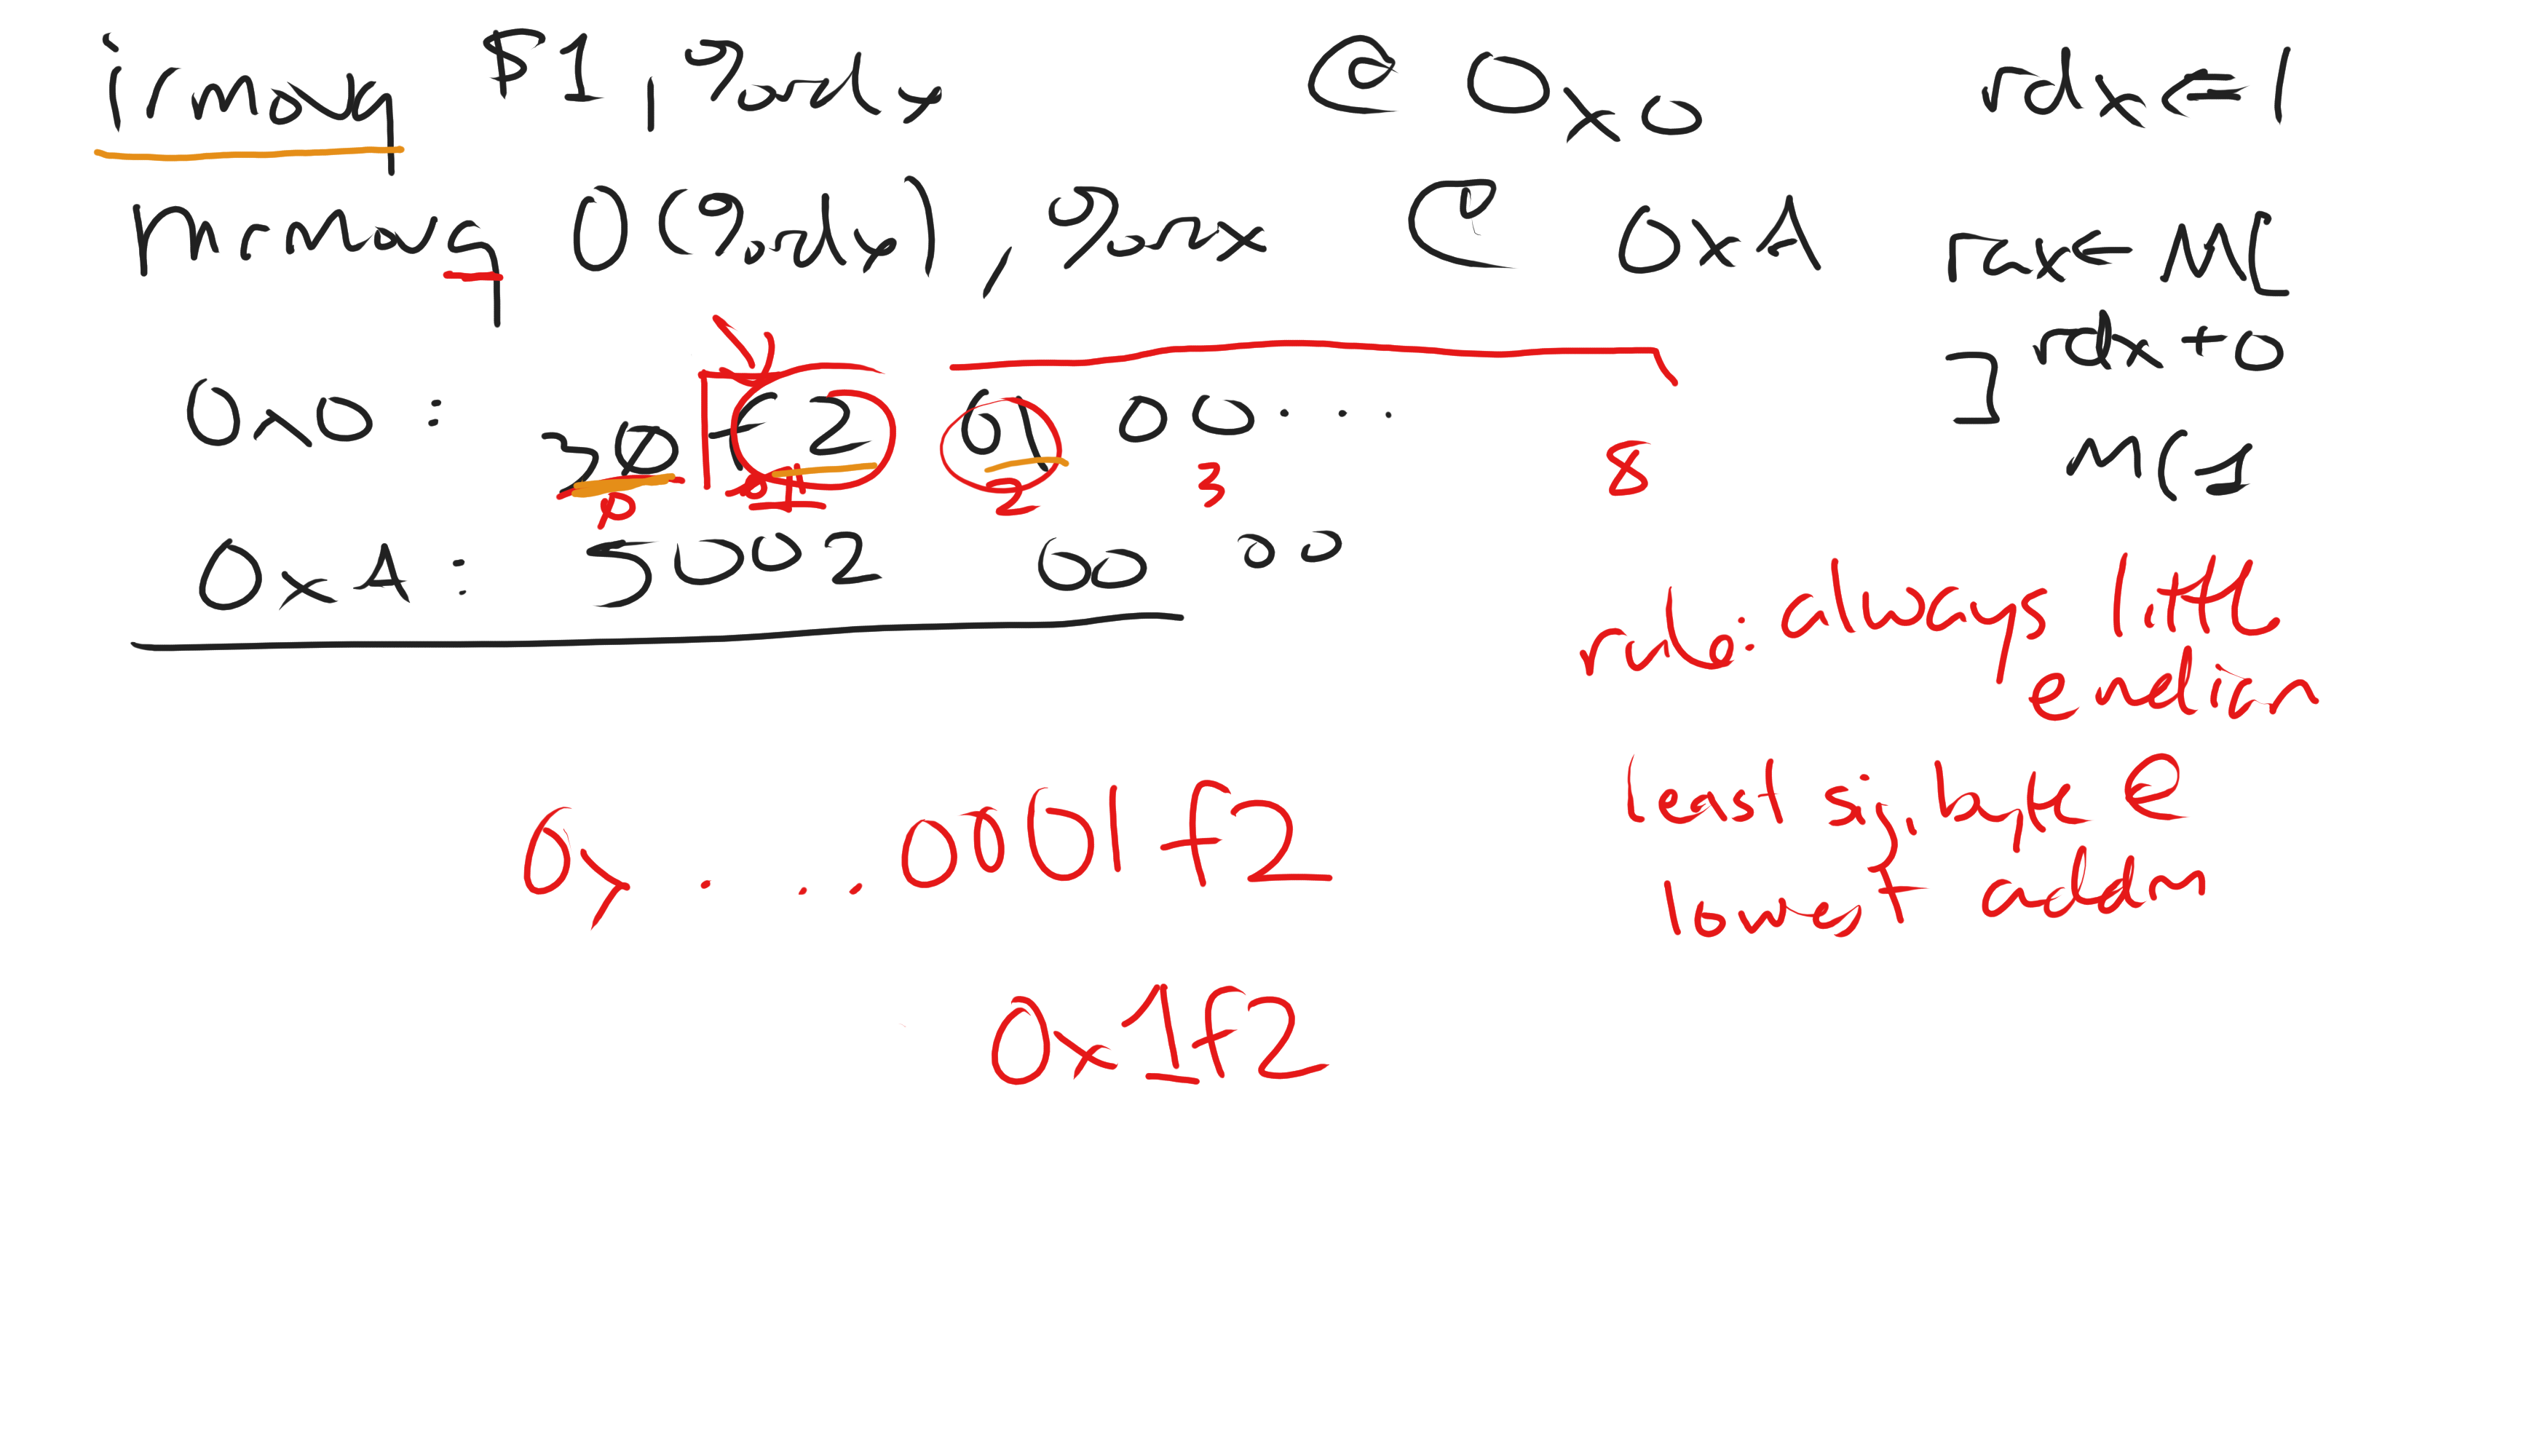 irmovq $1, %rdx @ 0x0 rdx <= 1
mrmovq 0(%rdx), %rax @ 0xA rax <- M[
rdx + 0
]
M[1
0x0 : 30 f2 01 00 ...
0 1 2 3 8
0xA : 5002 00 00
rule: always little
endian
least sig. byte @
lowest addr
0x . . . 0001f2
0x1f2